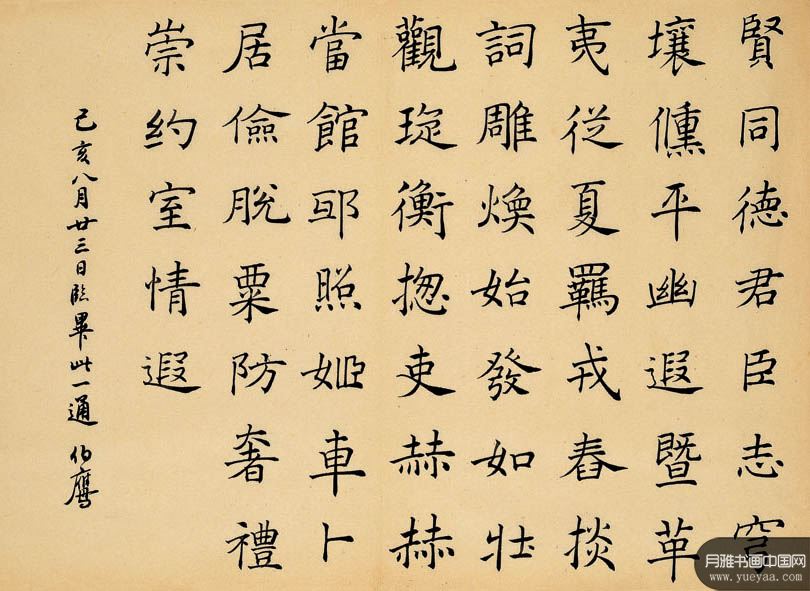 賢同徳君臣志穹
壤平幽遐暨革
夷從夏羈戎舂掞
詞雕煥始發如壯
觀琁衡揔吏赫赫
當館照姬車卜
居儉脫粟防奢禮
崇約室情遐
己亥八月廿三日臨畢此一通 伯鷹
月雅书画中国网
www.yueyaa.com